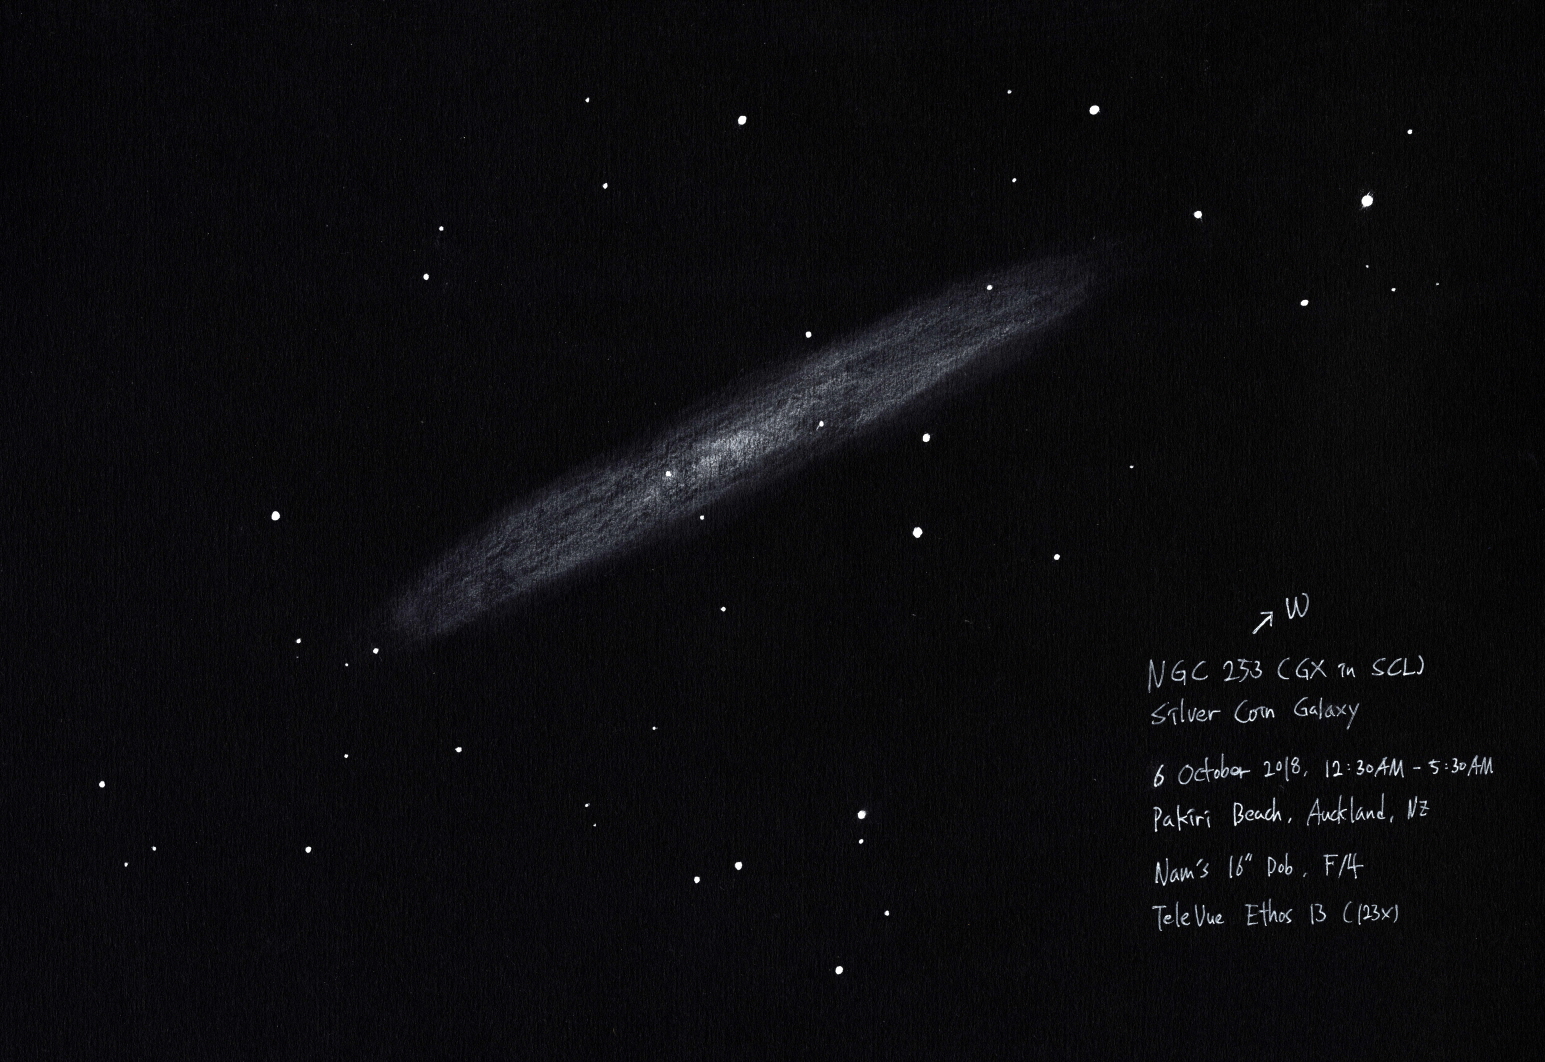 W
NGC 253 (GX in SCL)
Silver Coin Galaxy
6 October 2018, 12:30AM - 5:30AM
Pakiri Beach, Auckland, NZ
Nam's 16" Dob, F/4
TeleVue Ethos 13 (123x)